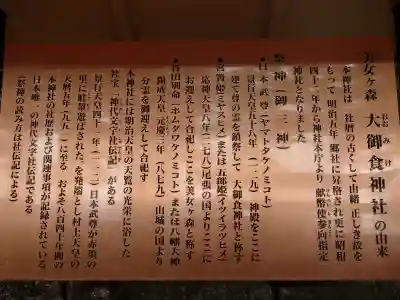 美女ケ森 大御食神社の由来
おお み け
本神社は 社暦の古くして由緒 正しき故を
もって 明治八年 郷社に昇格され更に昭和
四十二年から神社本庁より 献幣使参向指定
神社となりました
祭神(御三神)
●日本武尊(ヤマトタケノミコト)
景行天皇五十八年(一二九) 神殿をここに
建て尊の霊を鎮祭して 大御食神社と称す
●宮簀姫(ミヤスヒメ)または五郎姫(イツイラツヒメ)
応神天皇八年(二七八)尾張の国よりここに
お迎えして合祀しここを美女ケ森と称す
●誉田別命(ホムタワケノミコト)または八幡大神
陽成天皇 元慶二年(八七九) 山城の国より
分霊を御迎えして合祀す
本神社には明治天皇の天覧の光栄に浴した
社宝「神代文字社伝記」がある
景行天皇四十一年(一一一)日本武尊が赤須の
里に御遊ばされた を発端とし村上天皇の
天暦五年(九五一)に至る およそ八百四十年間の
本神社の社歴および関連事項が記録されている
日本唯一の神代文字社伝記である
(祭神の読み方は社伝記による)